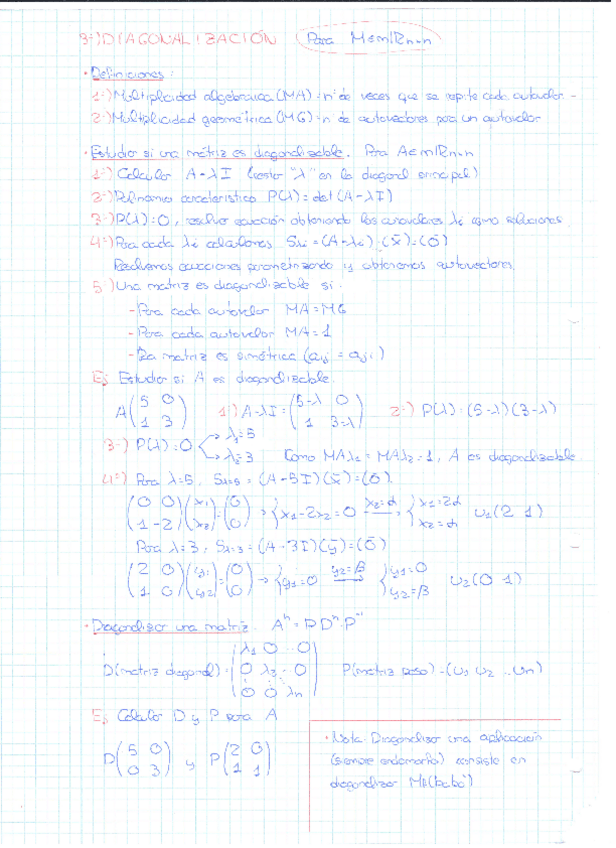 3-) DIAGONALIZACIÓN Para M∈mℝn·n
· Definiciones:
1-) Multiplicidad algebraica (MA) = nº de veces que se repite cada autovalor.
2-) Multiplicidad geométrica (MG) = nº de autovectores para un autovalor
· Estudiar si una matriz es diagonalizable. Para A∈mℝn·n
1-) Calcular A-λI (restar "λ" en la diagonal principal)
2-) Polinomio característico P(λ) = det (A-λI)
3-) P(λ)=0, resolver ecuación obteniendo los autovalores λi como soluciones.
4-) Para cada λi calculamos Sλi = (A-λi)·(x̄) = (ō)
Resolvemos ecuaciones parametrizando y obtenemos autovectores.
5-) Una matriz es diagonalizable si:
- Para cada autovalor MA=MG
- Para cada autovalor MA=1
- La matriz es simétrica (aij = aji)
Ej Estudiar si A es diagonalizable.
A(5 0 / 1 3) 1-) A-λI = (5-λ 0 / 1 3-λ) 2-) P(λ)=(5-λ)(3-λ)
3-) P(λ)=0 → λ1=5 → λ2=3 Como MAλ1 = MAλ2 = 1, A es diagonalizable.
4-) Para λ=5, Sλ=5 = (A-5I)(x̄)=(ō).
(0 0 / 1 -2)(x1 / x2)=(0 / 0) → {x1-2x2=0 x2=α → {x1=2α / x2=α u1(2 1)
Para λ=3, Sλ=3 = (A-3I)(ȳ)=(ō)
(2 0 / 1 0)(y1 / y2)=(0 / 0) → {y1=0 y2=β → {y1=0 / y2=β u2(0 1)
· Diagonalizar una matriz. Aⁿ = P Dⁿ·P⁻¹
D(matriz diagonal) = (λ1 0 ... 0 / 0 λ2 ... 0 / 0 0 λn) P(matriz paso) = (u1 u2 ... un)
Ej Calcular D y P para A
D(5 0 / 0 3) y P(2 0 / 1 1)
· Nota: Diagonalizar una aplicación
(siempre endomorfo) consiste en
diagonalizar